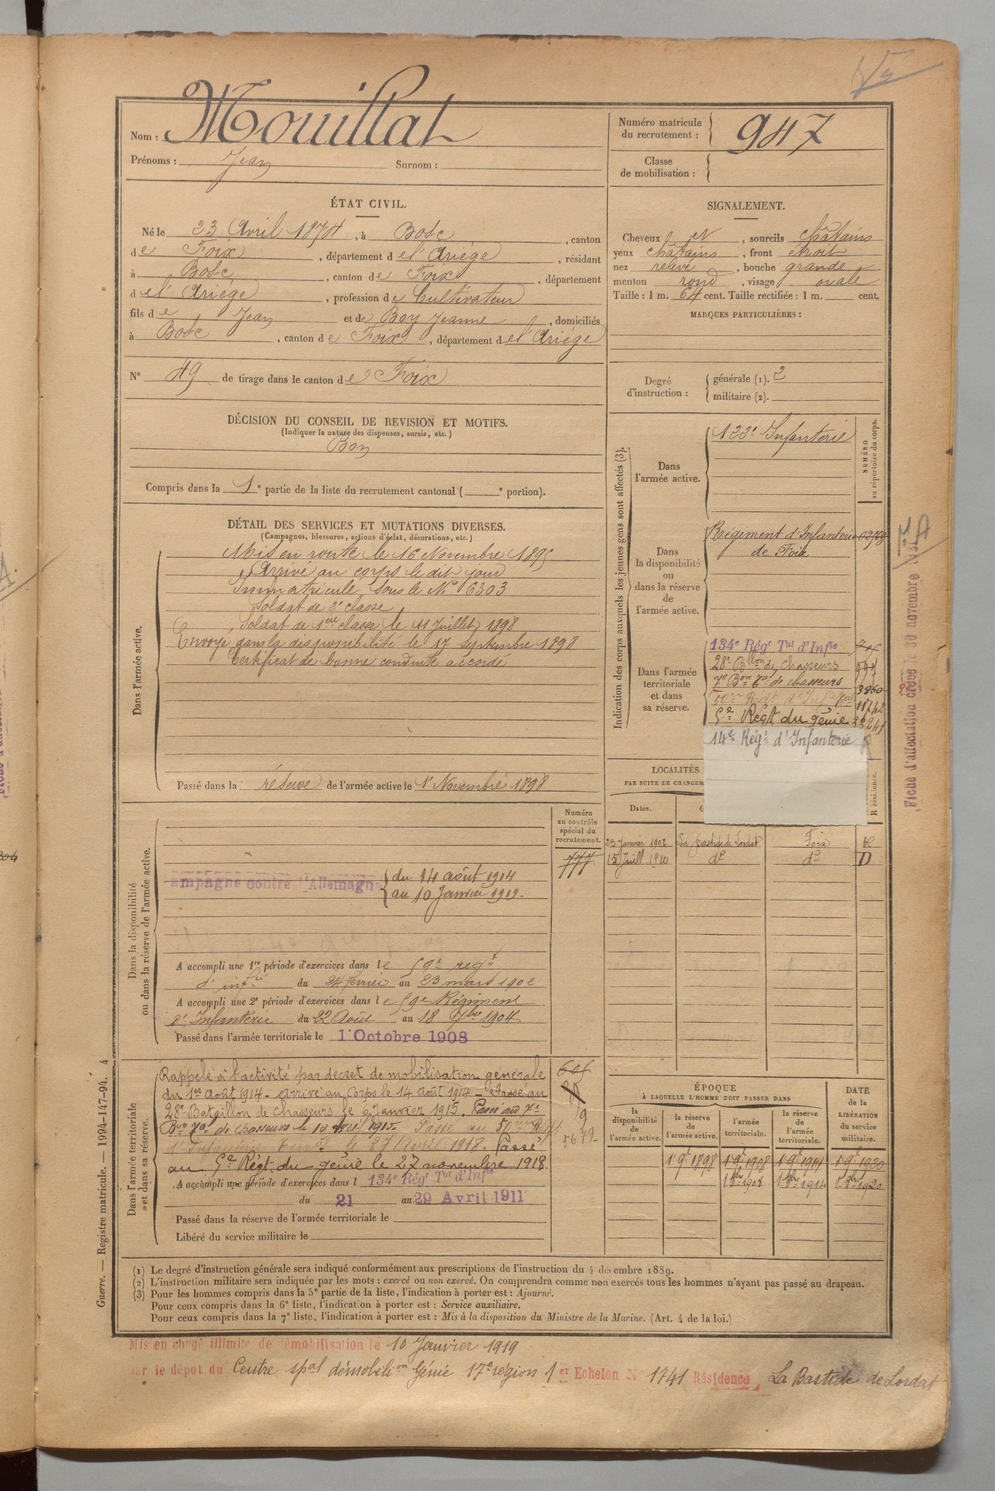 Nom : Mouillat
Prénoms : Jean Surnom :
Numéro matricule du recrutement : 947
Classe de mobilisation :
ÉTAT CIVIL.
Né le 23 Avril 1874, à Bosc, canton
de Foix, département de l'Ariége, résidant
à Bosc, canton de Foix, département
de l'Ariége, profession de Cultivateur
fils de Jean et de Boy Jeanne, domiciliés
à Bosc, canton de Foix, département de l'Ariége
N° 49 de tirage dans le canton de Foix
SIGNALEMENT.
Cheveux et, sourcils châtains
yeux châtains, front étroit
nez relevé, bouche grande
menton rond, visage ovale
Taille : 1 m. 64 cent. Taille rectifiée : 1 m. cent.
MARQUES PARTICULIÈRES :
Degré d'instruction : générale (1). 2
militaire (2).
DÉCISION DU CONSEIL DE REVISION ET MOTIFS.
(Indiquer la nature des dispenses, sursis, etc.)
Bon
Compris dans la 1e partie de la liste du recrutement cantonal ( e portion).
DÉTAIL DES SERVICES ET MUTATIONS DIVERSES.
(Campagnes, blessures, actions d'éclat, décorations, etc.)
Dans l'armée active.
Mis en route le 16 Novembre 1895
Arrivé au corps le dit jour
Immatriculé sous le N° 6303
Soldat de 2e classe
Soldat de 1ere classe le 11 Juillet 1898
Envoyé dans la disponibilité le 17 Septembre 1898
Certificat de bonne conduite accordé
Passé dans la réserve de l'armée active le 1r Novembre 1898
Indication des corps auxquels les jeunes gens sont affectés (3).
NUMÉRO au répertoire du corps.
Dans l'armée active.
122e Infanterie
Dans la disponibilité ou dans la réserve de l'armée active.
Régiment d'Infanterie
de Foix
Dans l'armée territoriale et dans sa réserve.
134e Régt Tal d'Infie
28e Bllon de chasseurs
7e Bon Tal de chasseurs
5e Régt du génie
14e Régt d'Infanterie
LOCALITÉS
PAR SUITE DE CHANGEM
Dates.
23 Janvier 1902 La Bastide de Lordat Foix R
15 Juill 1910 do do D
Dans la disponibilité ou dans la réserve de l'armée active.
Numéro au contrôle spécial du recrutement.
777
ampagne contre l'Allemagn du 14 août 1914
au 10 Janvier 1919.
A accompli une 1re période d'exercices dans le 59e regt
d'infie du 24 février au 23 mars 1902
A accompli une 2e période d'exercices dans le 59e Régiment
d'Infanterie du 22 Août au 18 7bre 1904
Passé dans l'armée territoriale le 1er Octobre 1908
Dans l'armée territoriale et dans sa réserve.
Rappelé à l'activité par décret de mobilisation générale
du 1er Août 1914. Arrivé au Corps le 14 août 1914 - Passé au
28e Bataillon de chasseurs le Janvier 1915. Passé au 7e
Bon Tal de chasseurs le 10 avril 1915. Passé au
d'Infanterie le 27 Avril 1918. Passé
au 5e Régt du génie le 27 novembre 1918
A accompli une période d'exercices dans l 134e Régt Tal d'Infie
du 21 au 29 Avril 1911
Passé dans la réserve de l'armée territoriale le
Libéré du service militaire le
ÉPOQUE
À LAQUELLE L'HOMME DOIT PASSER DANS
la disponibilité de l'armée active.
la réserve de l'armée active.
l'armée territoriale.
la réserve de l'armée territoriale.
DATE de la LIBÉRATION du service militaire.
1r 9bre 1898 1r 9e 1908 1r 9e 1914 1r 9e 1920
1r 8bre 1908 1r 8bre 1914 1r 8bre 1920
(1) Le degré d'instruction générale sera indiqué conformément aux prescriptions de l'instruction du 4 décembre 1889.
(2) L'instruction militaire sera indiquée par les mots : exercé ou non exercé. On comprendra comme non exercés tous les hommes n'ayant pas passé au drapeau.
(3) Pour les hommes compris dans la 5e partie de la liste, l'indication à porter est : Ajourné.
Pour ceux compris dans la 6e liste, l'indication à porter est : Service auxiliaire.
Pour ceux compris dans la 7e liste, l'indication à porter est : Mis à la disposition du Ministre de la Marine. (Art. 4 de la loi.)
Mis en congé illimité de démobilisation le 10 Janvier 1919
par le dépot du Centre spal démobilion Génie 17e région 1er Echelon N° 1741 Résidence La Bastide de Lordat
Guerre. — Registre matricule. — 1994-147-94. 4